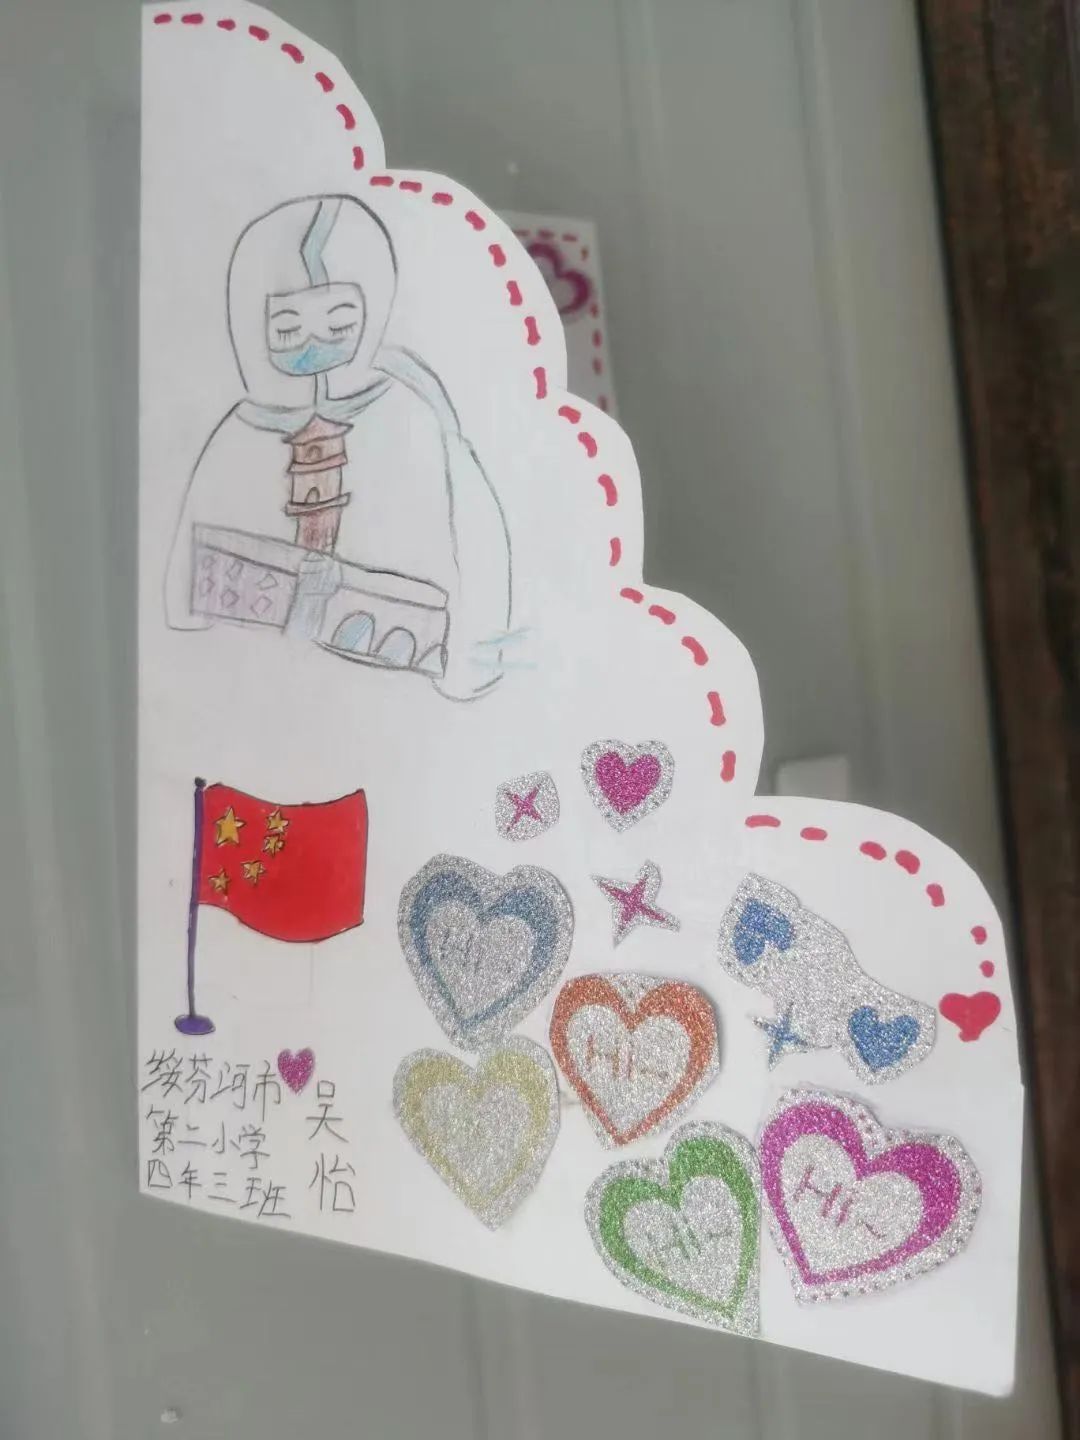 绥芬河市
第二小学
四年三班
吴怡
Hi
Hi
Hi
Hi